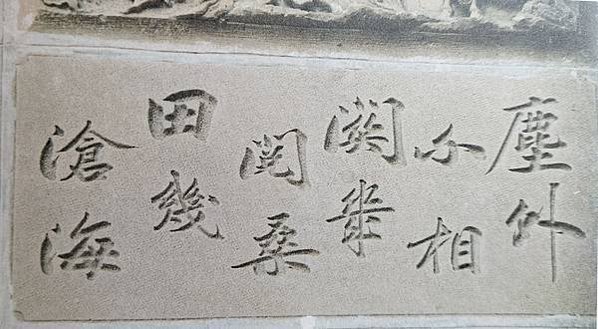 塵外
不相
關幾
閱桑
田幾
滄海